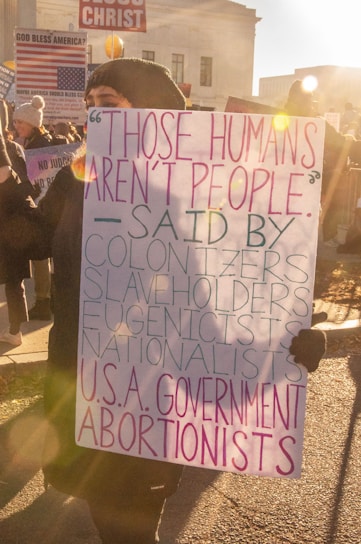 JESUS
CHRIST
GOD BLESS AMERICA?
NO JUDG
"THOSE HUMANS
AREN'T PEOPLE."
— SAID BY
COLONIZERS
SLAVEHOLDERS
EUGENICISTS
NATIONALISTS
U.S.A. GOVERNMENT
ABORTIONISTS